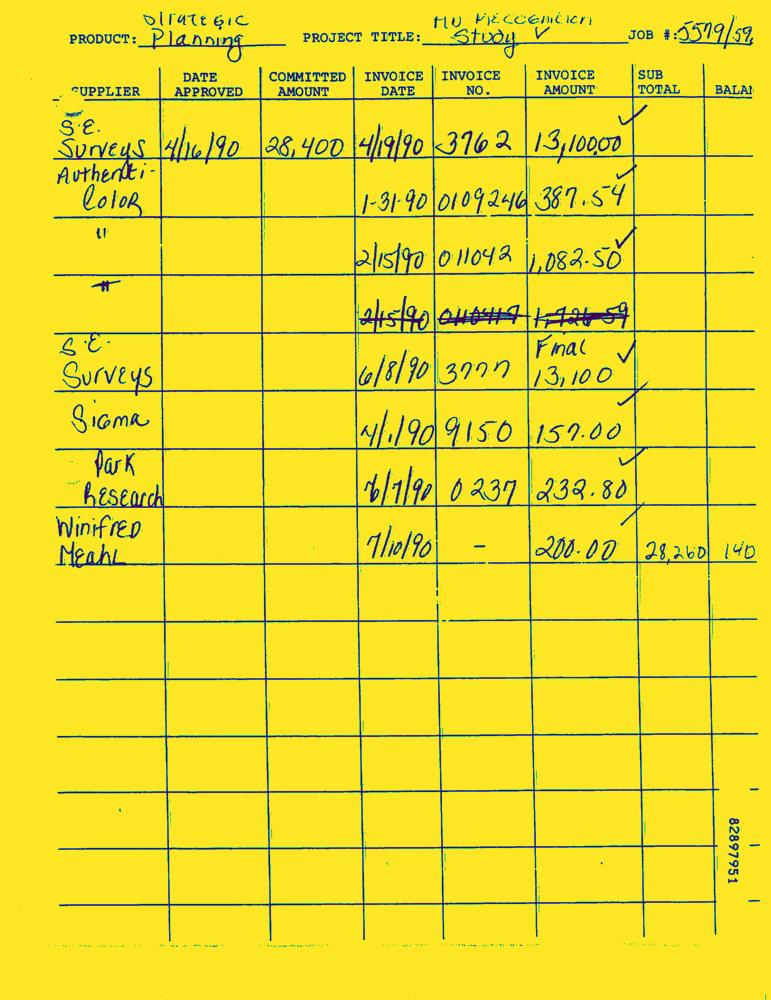 Strategic
PRODUCT: Planning PROJECT TITLE: Ad Recognition Study ✓ JOB #: 5579/59
SUPPLIER DATE APPROVED COMMITTED AMOUNT INVOICE DATE INVOICE NO. INVOICE AMOUNT SUB TOTAL BALA
S.E.
Surveys 4/16/90 28,400 4/19/90 3762 13,100.00 ✓
Authenti-
Color 1-31-90 0109246 387.54 ✓
" 2/15/90 011042 1,082.50 ✓
" 2/15/90
S.E. Final
Surveys 6/8/90 3777 13,100 ✓
Sigma 9150 157.00 ✓
Park
Research 0237 232.80 ✓
Winifred
Meahl 7/10/90 - 200.00 28,260 140
82897951